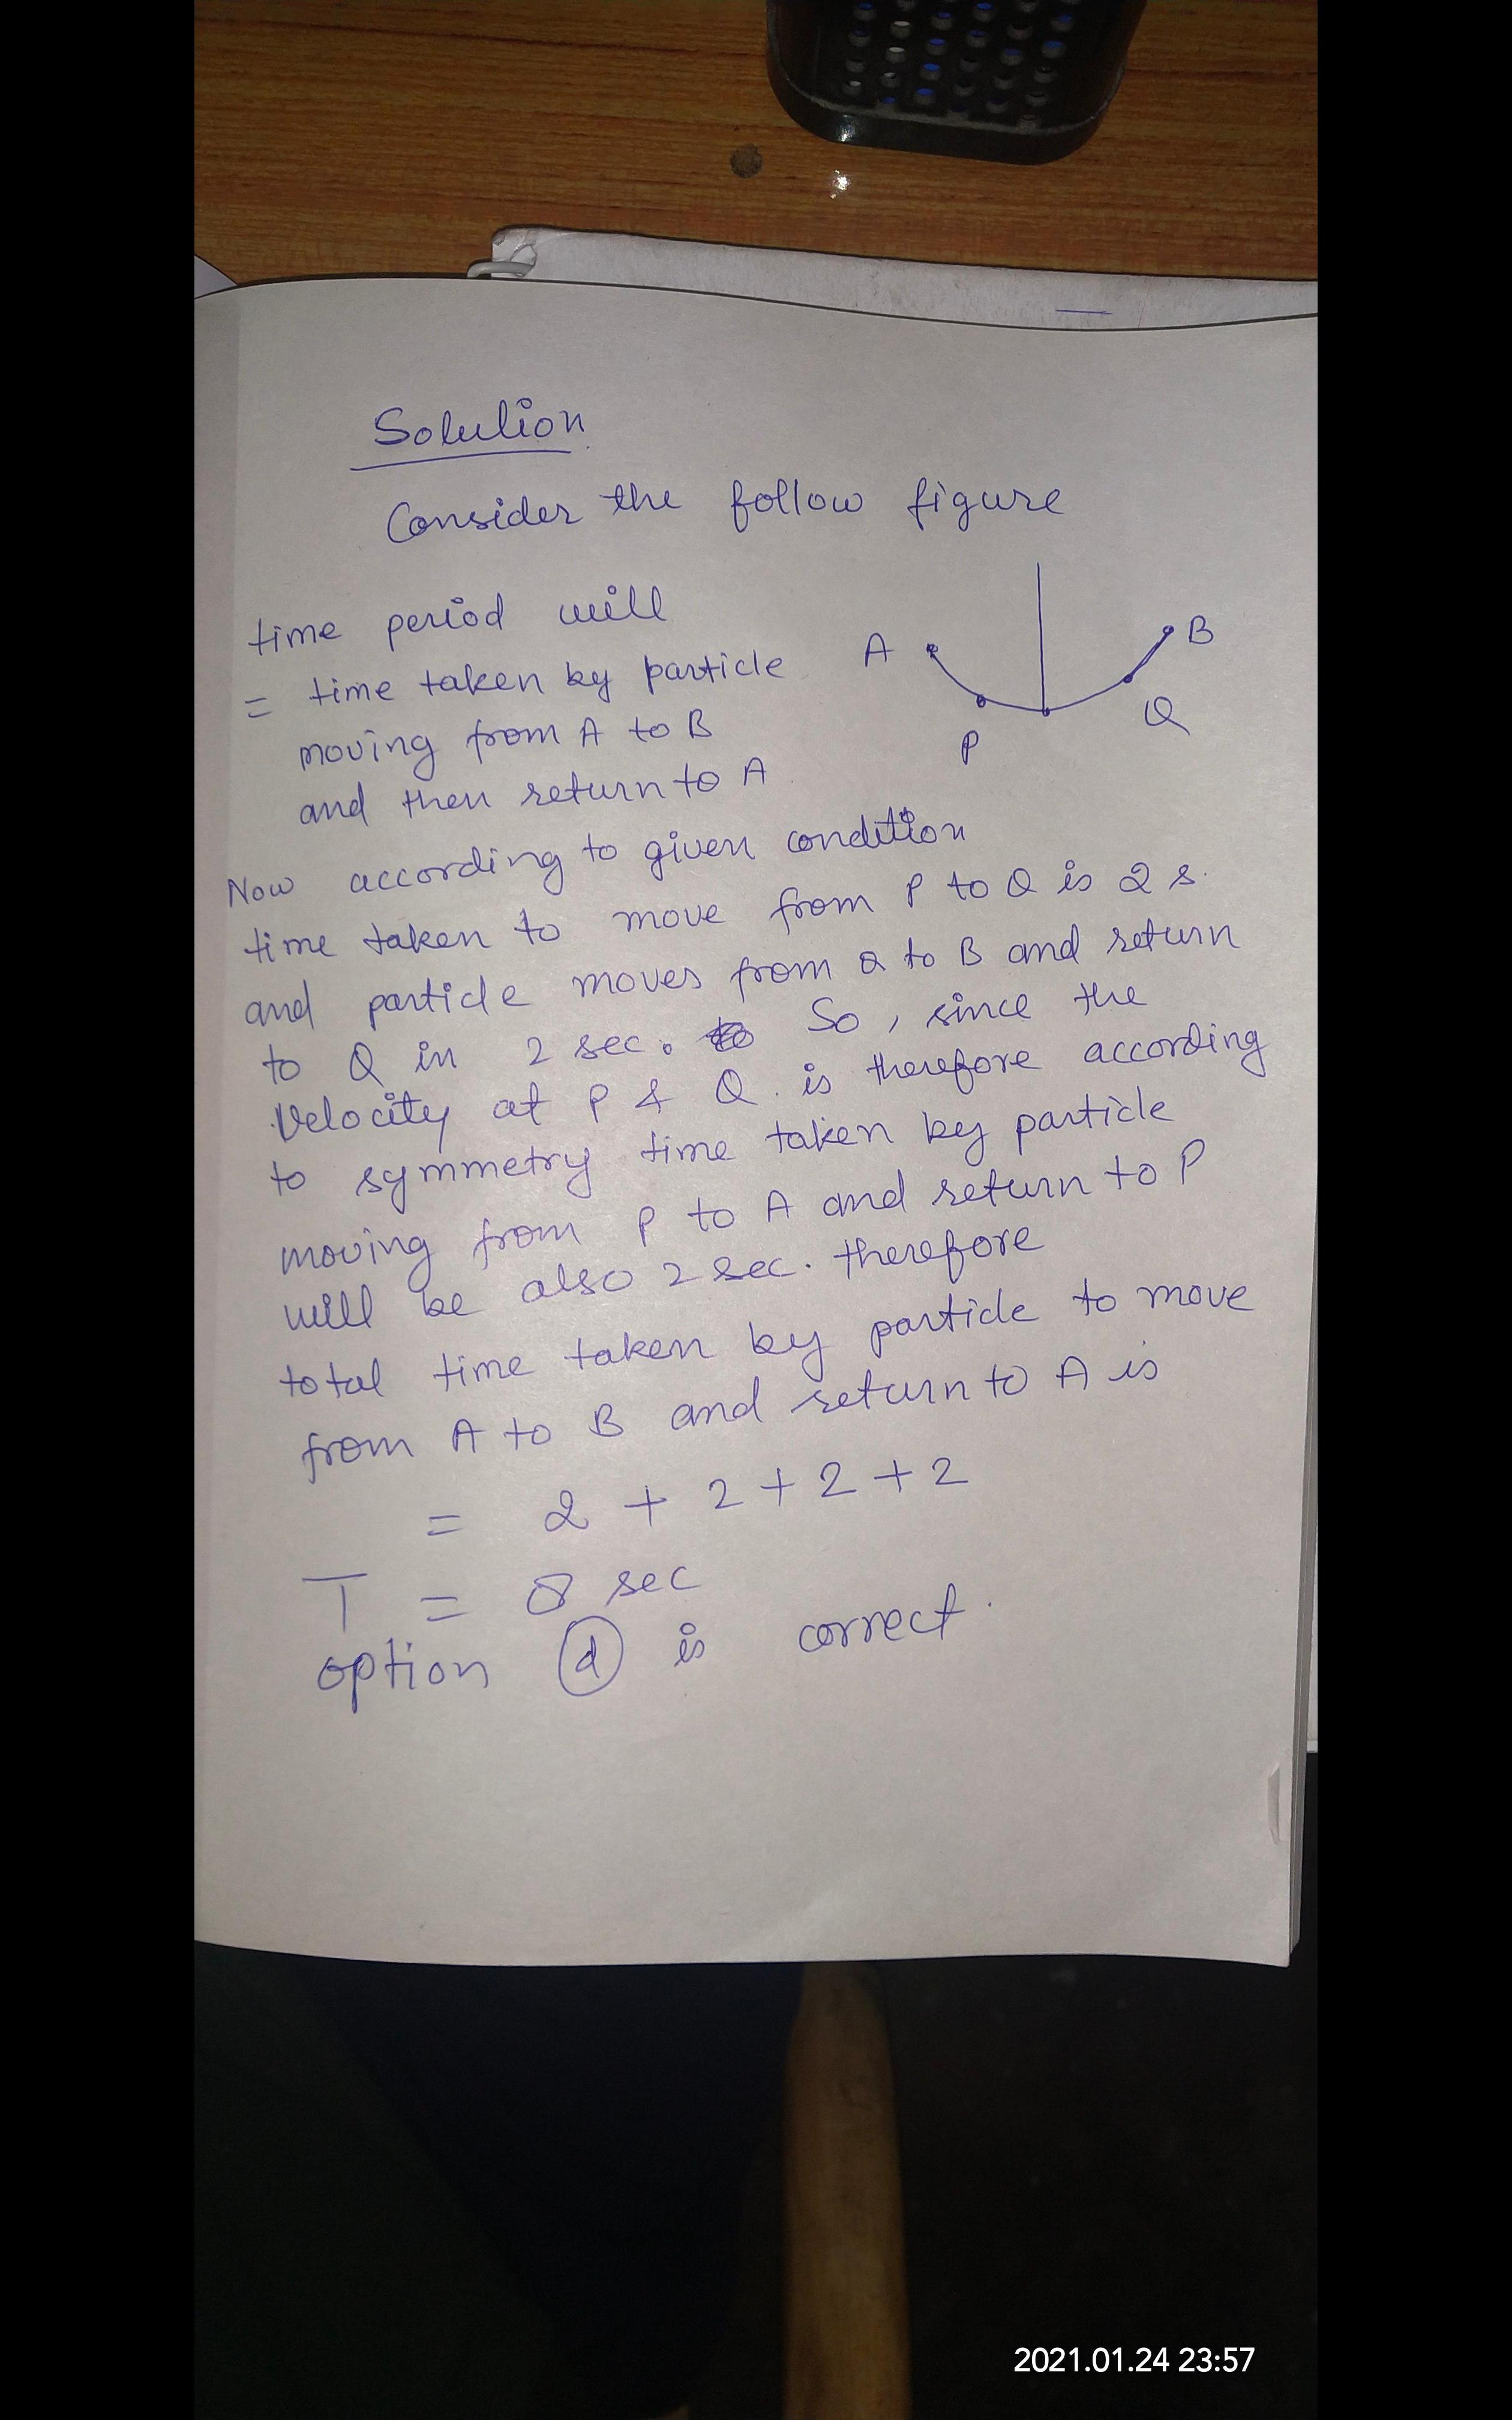 Solution
Consider the follow figure
time period will
= time taken by particle
moving from A to B
and then return to A
A
B
P
Q
Now according to given condition
time taken to move from P to Q is 2 s.
and particle moves from Q to B and return
to Q in 2 sec. So, since the
Velocity at P & Q is therefore according
to symmetry time taken by particle
moving from P to A and return to P
will be also 2 sec. therefore
total time taken by particle to move
from A to B and return to A is
= 2 + 2 + 2 + 2
T = 8 sec
option (d) is correct.
2021.01.24 23:57